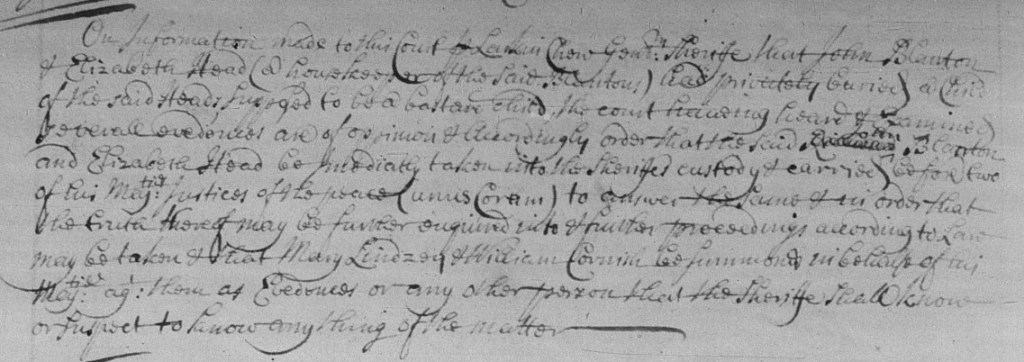 On Information made to this Court by Larkin Chew Gent: Sheriffe that John Blanton
& Elizabeth Head (a housekeeper of the said Blantons) had privately buried a Child
of the said Heads Suposed to be a bastard Child, the court haveing heard & Examined
severall evedences are of oppinion & Accordingly order that the said Blanton
and Elizabeth Head be Imediatly taken into the Sheriffs custody & carried before two
of his Maj:ties Justices of the peace (unus Coram) to answer the same & in order that
the truth thereof may be further enquired into & further proceedings according to Law
may be taken & that Mary Lindzey & William Cornish be summoned in behalfe of his
Maj:tie ag: them as Evedences or any other person that the Sheriffe shall know
or suspect to know any thing of the matter